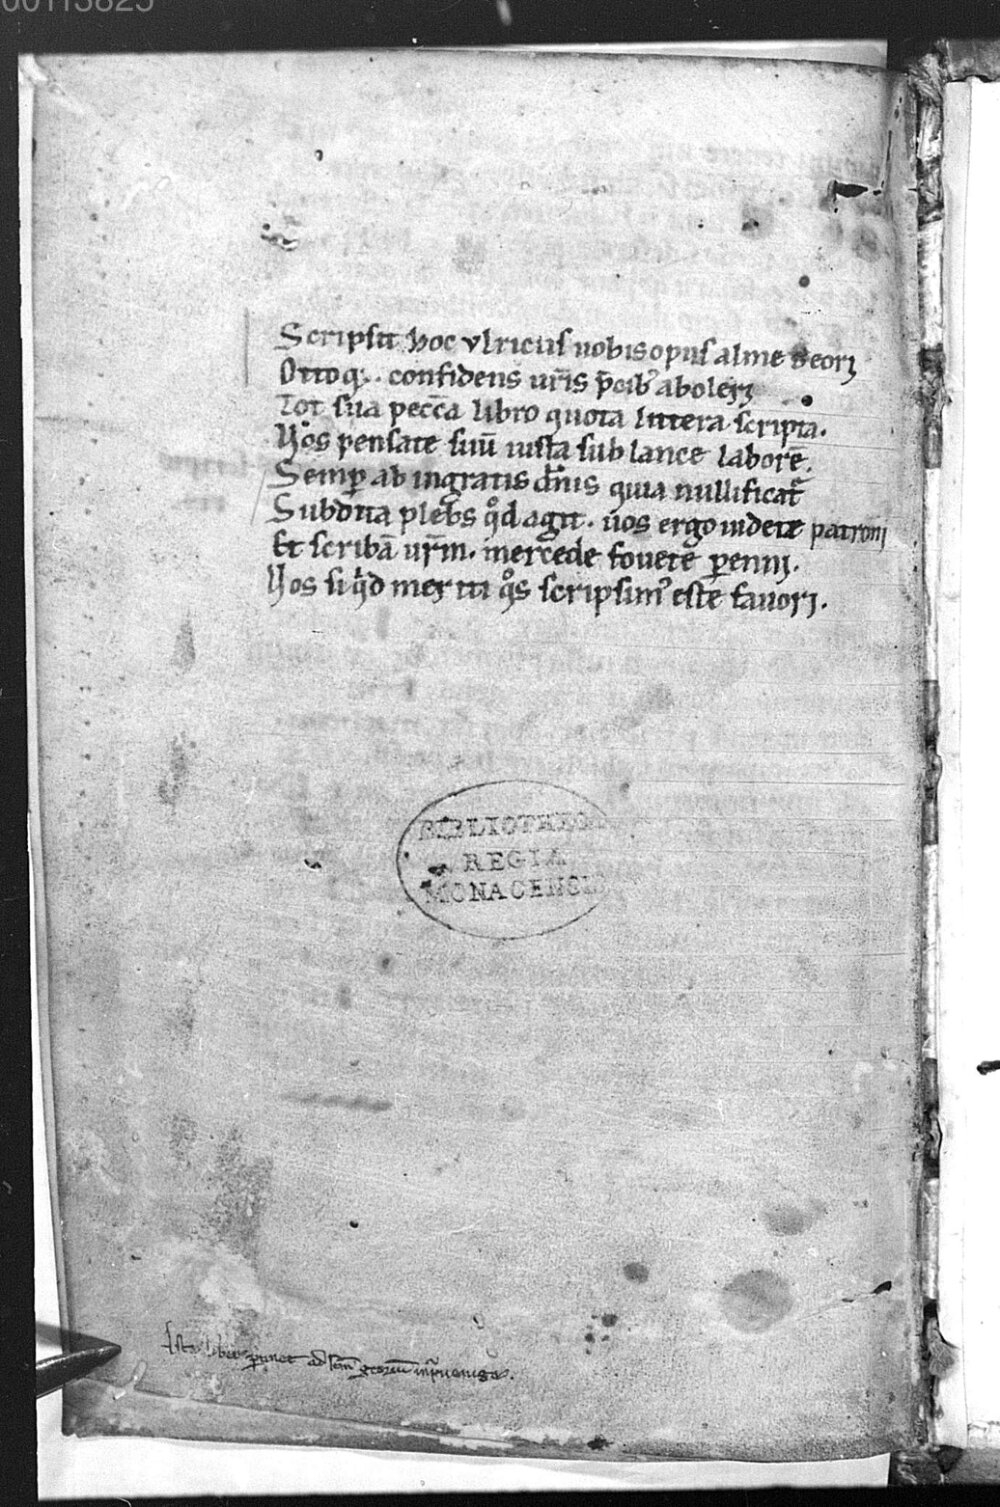 00113825
Scripsit hoc vlricus uobis opus alme Georị
Ottoq;. confidens ur̄is p̄cib' aboleri
Tot sua pecc̄a libro quota littera scripta.
Uos pensate suū iusta sub lance laborē.
Semp ab ingratis dn̄is quia nullificat᷑
Subdita plebs qd agit. uos ergo uidete patroni
Et scribā ur̄m. mercede fouete perenni.
Uos siqd meriti qs scripsim' este fauori.
BIBLIOTHECA
REGIA
MONACENSIS
Iste liber ꝑtinet ad scm̄ georiū